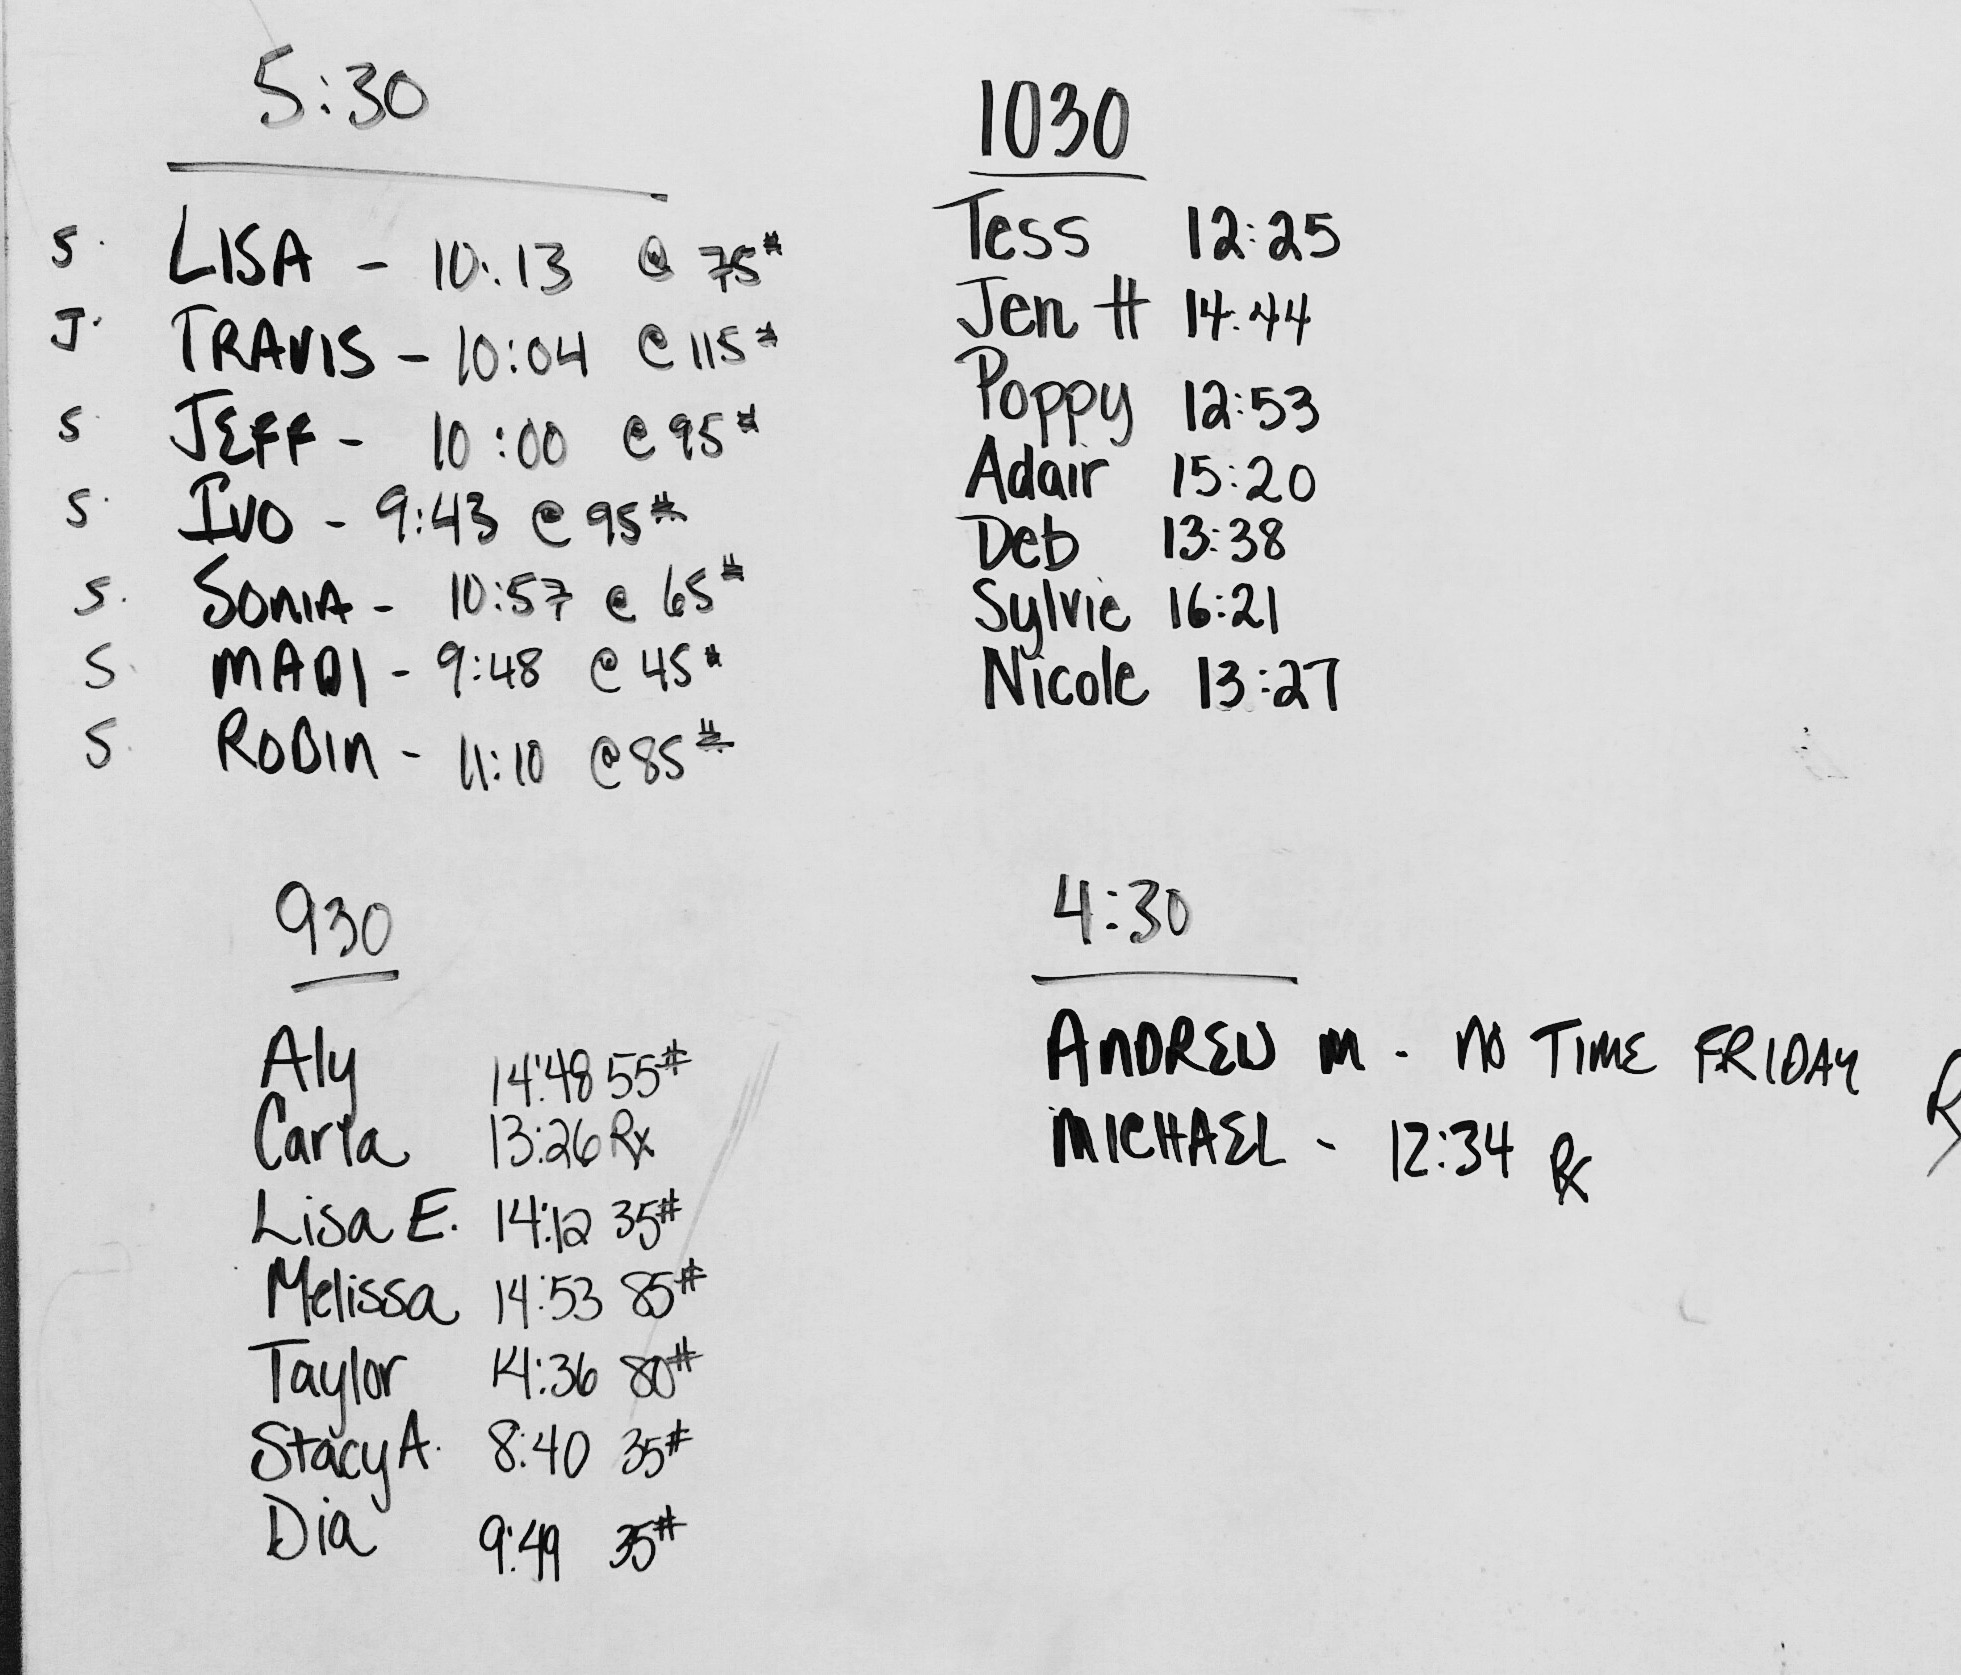 5:30
S. LISA - 10:13 @ 75#
J. TRAVIS - 10:04 @ 115#
S. JEFF - 10:00 @ 95#
S. IVO - 9:43 @ 95#
S. SONIA - 10:57 @ 65#
S. MADI - 9:48 @ 45#
S. ROBIN - 11:10 @ 85#
1030
Tess 12:25
Jen H 14:44
Poppy 12:53
Adair 15:20
Deb 13:38
Sylvie 16:21
Nicole 13:27
930
Aly 14:48 55#
Carla 13:26 Rx
Lisa E. 14:12 35#
Melissa 14:53 85#
Taylor 14:36 80#
Stacy A. 8:40 35#
Dia 9:49 35#
4:30
ANDREW M - NO TIME FRIDAY
MICHAEL - 12:34 Rx